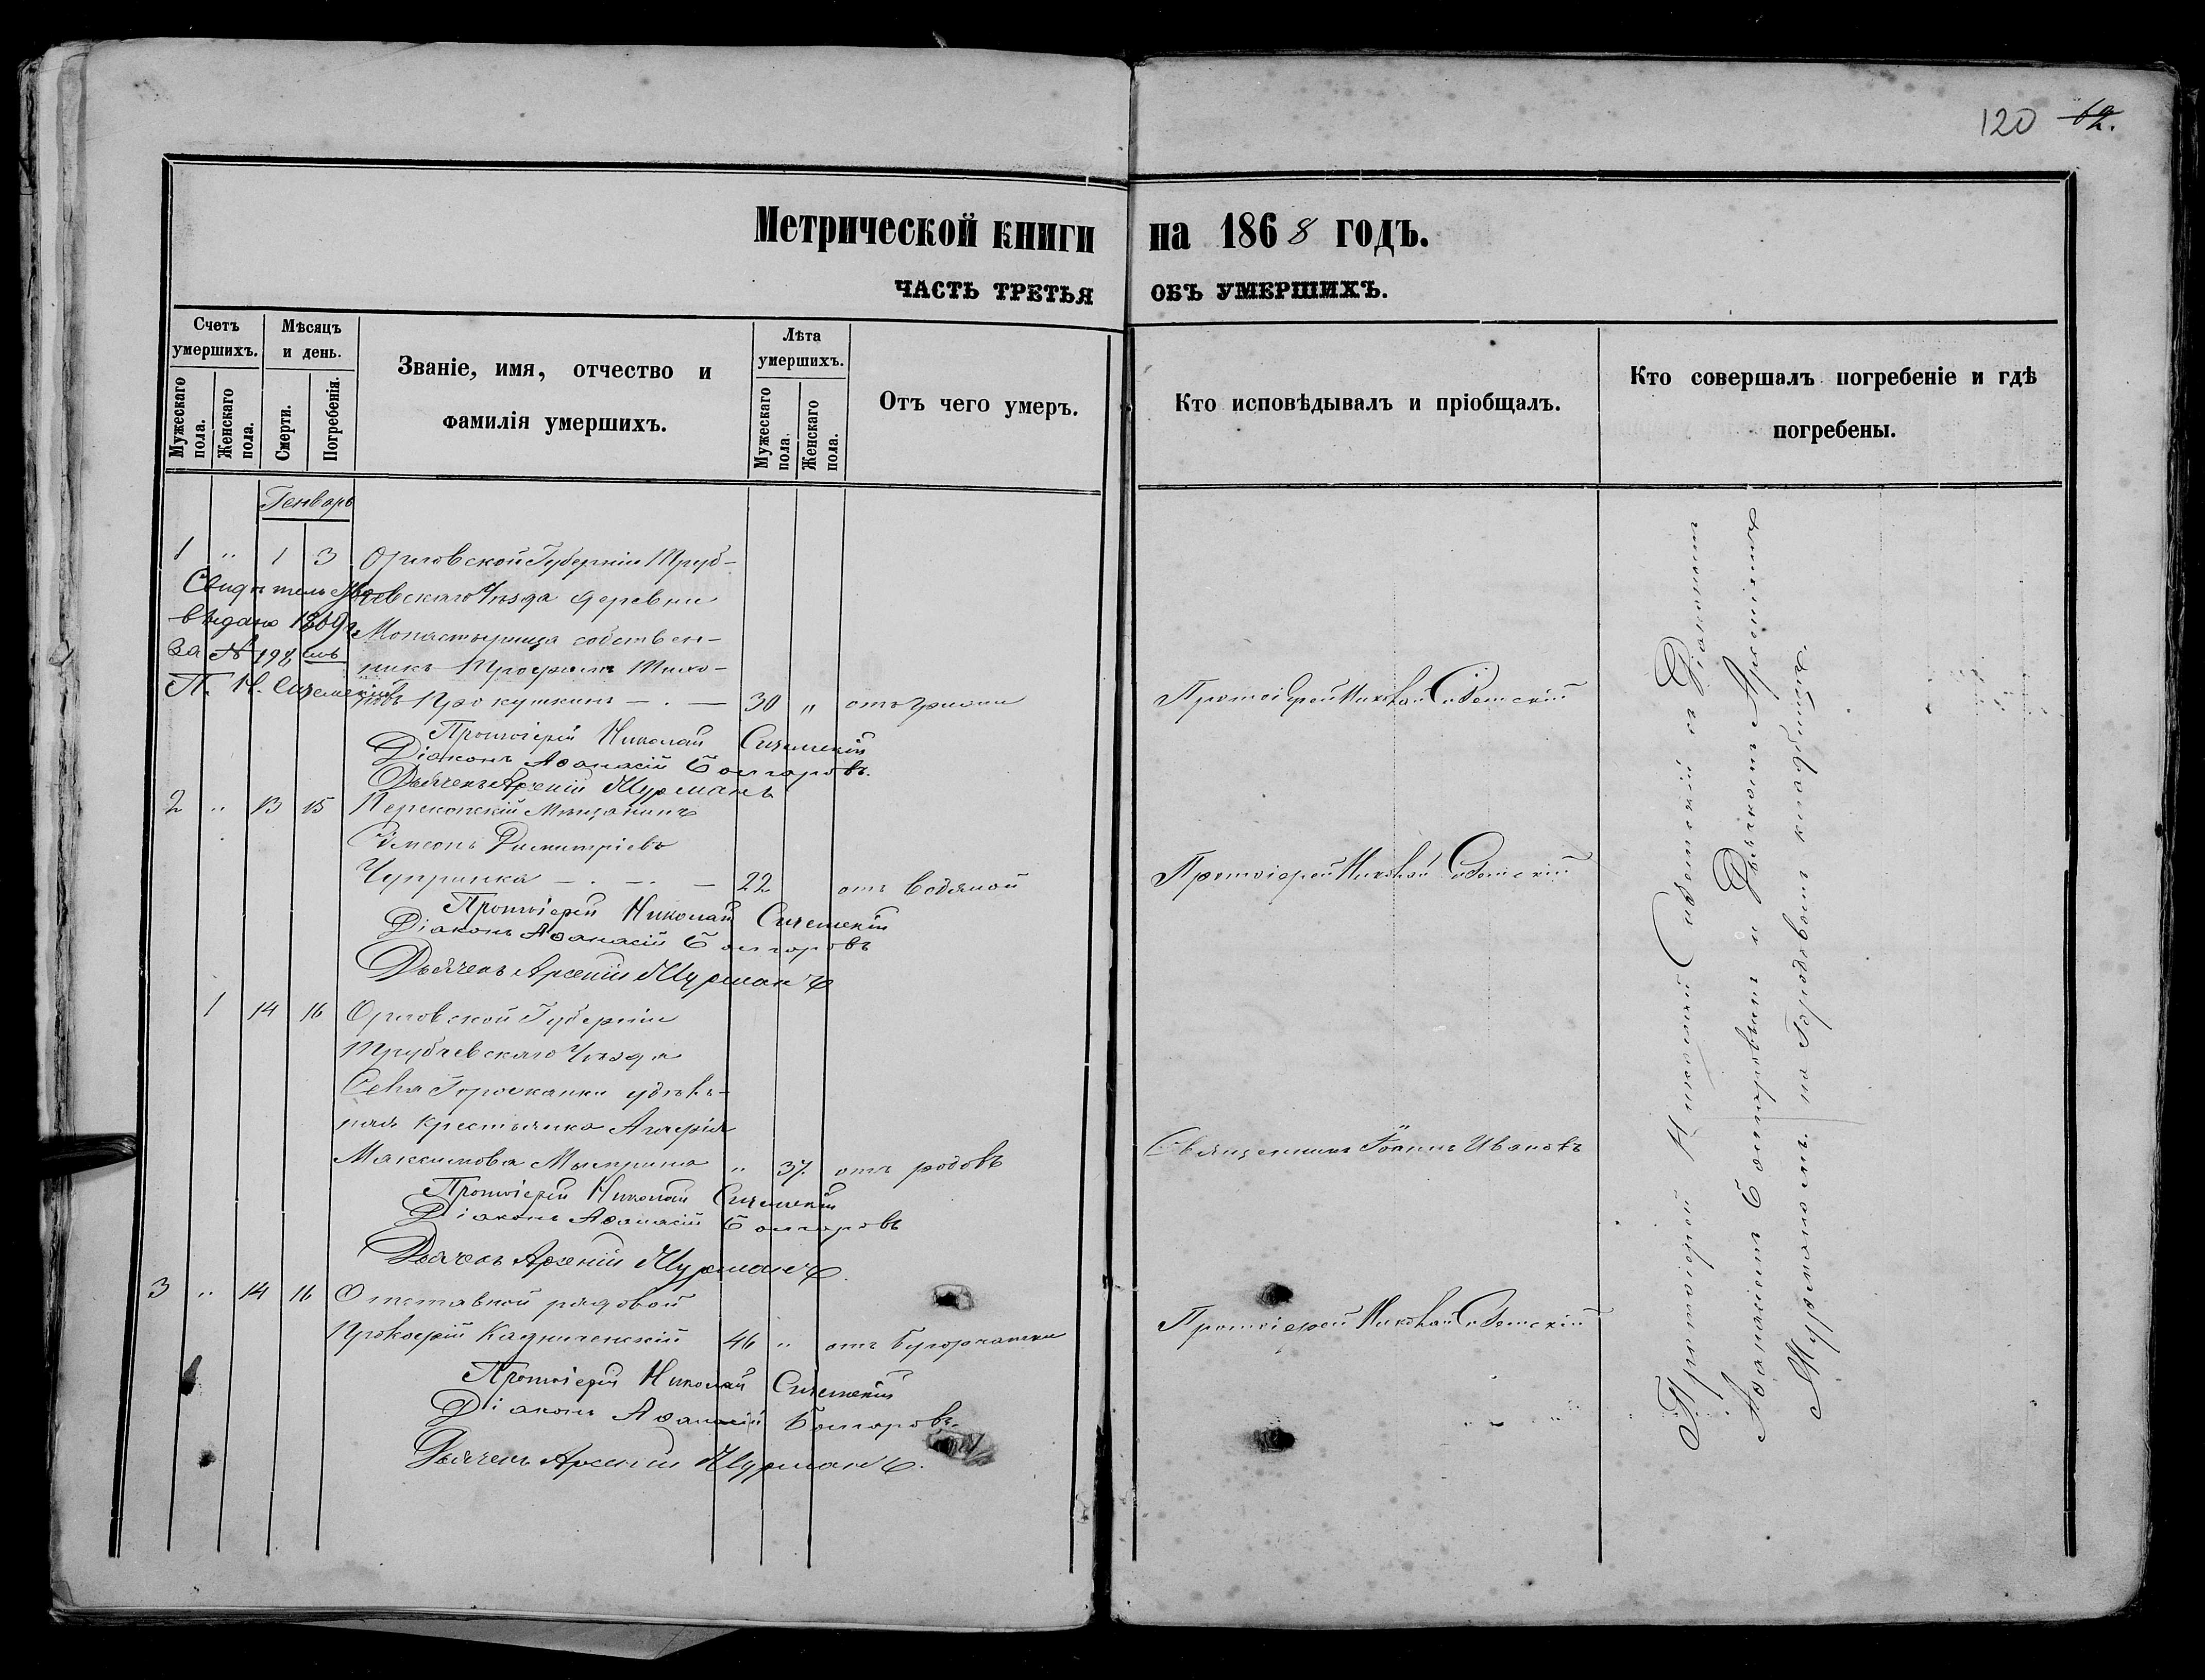 120 62.
Метрической книги на 1868 годъ.
ЧАСТЬ ТРЕТЬЯ ОБЪ УМЕРШИХЪ.
Счетъ умершихъ.
Мужескаго пола.
Женскаго пола.
Мѣсяцъ и день.
Смерти.
Погребенія.
Званіе, имя, отчество и
фамилія умершихъ.
Лѣта умершихъ.
Мужескаго пола.
Женскаго пола.
Отъ чего умеръ.
Кто исповѣдывалъ и пріобщалъ.
Кто совершалъ погребеніе и гдѣ
погребены.
Генварь
1 " 1 3 Орловской Губерніи Труб-
чевскаго Уѣзда деревни
Монастырища собствен-
никъ Трофимъ Тихо-
новъ Прокушкинъ — . — 30 " отъ Протоіерей Николай
Свидѣтельство
выдано 1869 г.
За № 198
П. Н.
Протоіерей Николай
Діаконъ Аѳанасій Болгаровъ.
Дьячекъ Арсеній Мурманъ
2 " 13 15 Перекопскій Мѣщанинъ
Симеонъ Димитріевъ
Чупринка — . — . — 22 отъ водяной Протоіерей Николай
Протоіерей Николай
Діаконъ Аѳанасій Болгаровъ
Дьячекъ Арсеній Мурманъ
1 14 16 Орловской Губерніи
Трубчевскаго Уѣзда
Села
ная крестьянка
Максимова " 37. отъ родовъ Священникъ Іоаннъ Ивановъ
Протоіерей Николай
Діаконъ Аѳанасій Болгаровъ
Дьячекъ Арсеній Мурманъ.
3 " 14 16 Отставной рядовой
Прокофій 46 " отъ бугорчатки Протоіерей Николай
Протоіерей Николай
Діаконъ Аѳанасій Болгаровъ.
Дьячекъ Арсеній Мурманъ.
Протоіерей Николай съ Діакономъ
Аѳанасіемъ Болгаровымъ и Дьячкомъ Арсеніемъ
Мурманомъ. на Городовомъ кладбищѣ.